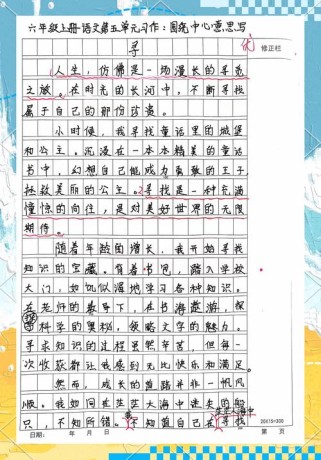 六年级上册·语文第五单元习作：围绕中心意思写
优
修正栏
寻
人生，仿佛是一场漫长的寻觅
之旅。在时光的长河中，不断寻找
属于自己的那份珍贵。
小时候，我寻找童话里的城堡
和公主。沉浸在一本本精美的童话
书中，幻想自己能成为勇敢的王子，
拯救美丽的公主。寻找是一种充满
憧憬的向往，是对美好世界的无限
期待。
随着年龄的增长，我开始寻找
知识的宝藏。背着书包，踏入学校
大门，如饥似渴地学习各种知识。
在老师的教导下，在书海遨游，探
索科学的奥秘，领略文字的魅力。
寻求知识的过程虽然辛苦，但每一
次收获都让我感到无比快乐和满足。
然而，成长的道路并非一帆风
顺。我如同在茫茫大海中迷失的船
只，不知所错。我不知道自己在茫茫人海中寻找
20X15=300
日期： 年 月 日 第 页